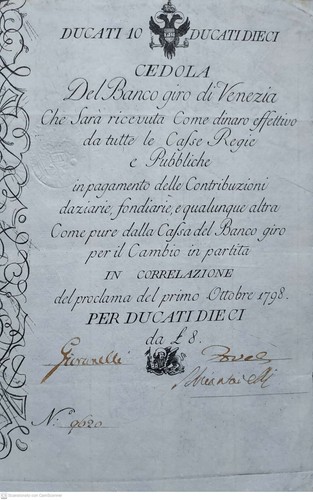 DUCATI 10 DUCATI DIECI
CEDOLA
Del Banco giro di Venezia
Che Sarà ricevuta Come dinaro effettivo
da tutte le Casse Regie
e Pubbliche
in pagamento delle Contribuzioni
daziarie, fondiarie, e qualunque altra
Come pure dalla Cassa del Banco giro
per il Cambio in partita
IN CORRELAZIONE
del proclama del primo Ottobre 1798.
PER DUCATI DIECI
da £ 8.
Giovanelli
No. 9620